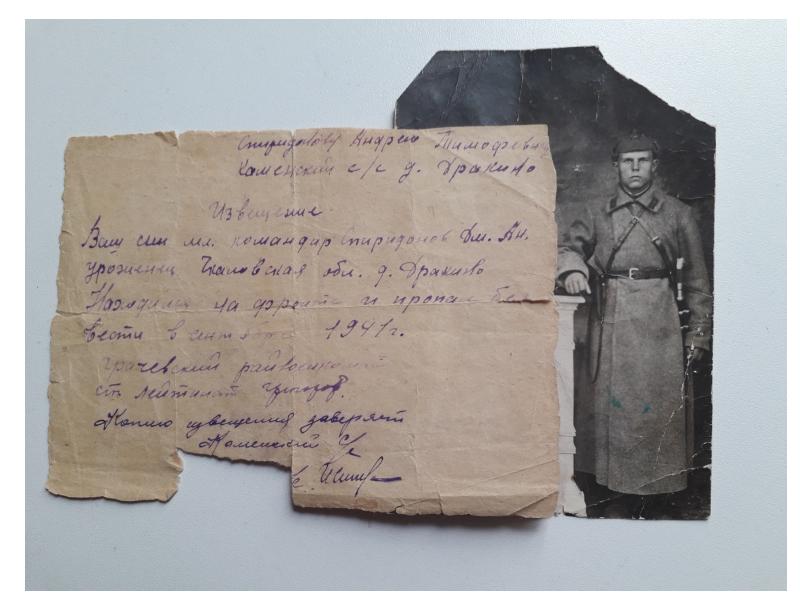 Спиридонову Андрею Тимофеевичу
Каменский с/с д. Дракино
Извещение
Ваш сын мл. командир Спиридонов Дм. Ан.
уроженец Чкаловская обл. д. Дракино
Находился на фронте и пропал без
вести в сентябре 1941 г.
Грачевский райвоенкомат
ст лейтинат
Копию извещения заверяет
Каменский с/с